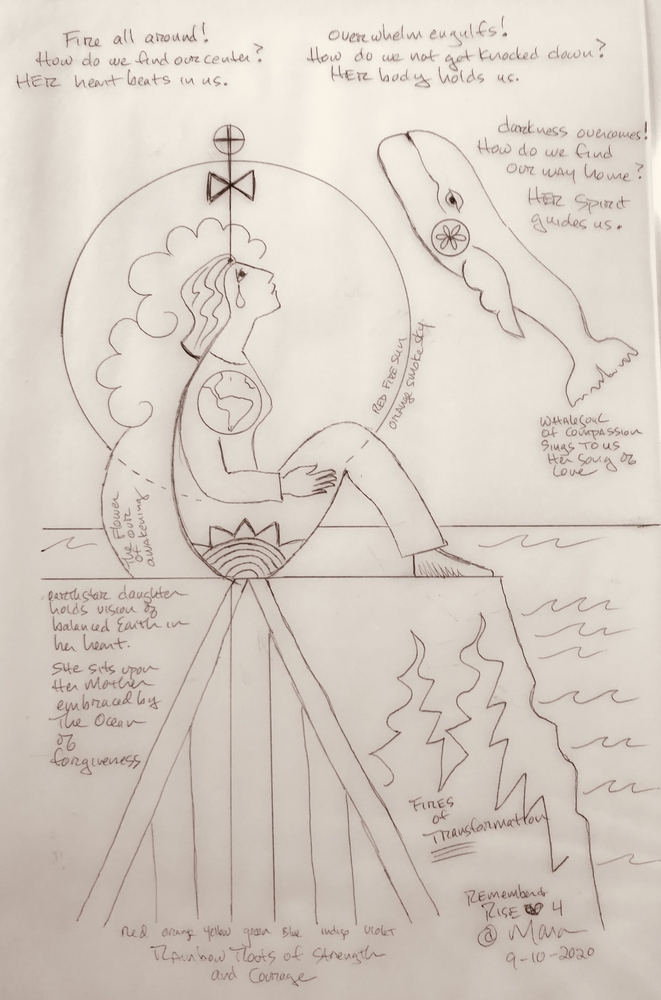 Fire all around!
How do we find our center?
HER heart beats in us.
overwhelm engulfs!
How do we not get knocked down?
HER body holds us.
darkness overcomes!
How do we find
our way home?
HER Spirit
guides us.
RED FIRE SUN
orange smoke sky
WHALESOUL
of COMPASSION
Sings TO US
Her Song of
Love
The Flower
of
awakening
earthstar daughter
holds vision of
balanced Earth in
her heart.
She sits upon
Her Mother
embraced by
The Ocean
of
forgiveness
FIRES
of
Transformation
Red orange yellow green Blue indigo violet
Rainbow Roots of Strength
and Courage
Remember
RISE 4
@ Mara
9-10-2020